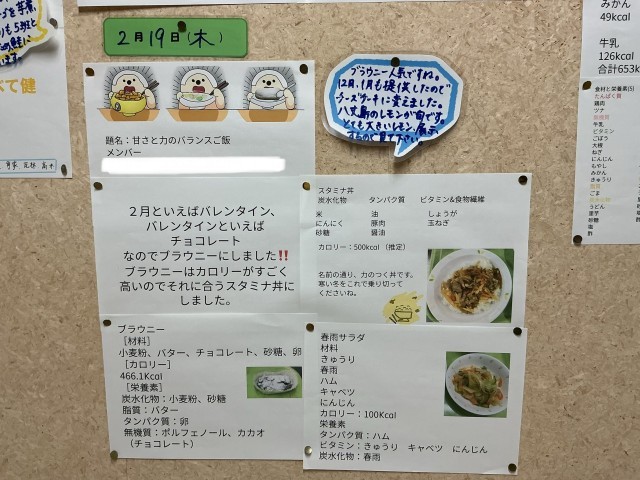 2月19日(木)
題名：甘さと力のバランスご飯
メンバー
２月といえばバレンタイン、
バレンタインといえば
チョコレート
なのでブラウニーにしました‼
ブラウニーはカロリーがすごく
高いのでそれに合うスタミナ丼に
しました。
ブラウニー
［材料］
小麦粉、バター、チョコレート、砂糖、卵
［カロリー］
466.1Kcal
［栄養素］
炭水化物：小麦粉、砂糖
脂質：バター
タンパク質：卵
無機質：ポルフェノール、カカオ
（チョコレート）
ブラウニー人気ですね。
12月、1月も提供したので
チーズケーキに変えました。
八丈島のレモンが旬です。
とても大きいレモン、展示
するので見て下さい。
スタミナ丼
炭水化物　タンパク質　ビタミン&食物繊維
米　油　しょうが
にんにく　豚肉　玉ねぎ
砂糖　醤油
カロリー：500kcal（推定）
名前の通り、力のつく丼です。
寒い冬をこれで乗り切って
くださいね。
春雨サラダ
材料
きゅうり
春雨
ハム
キャベツ
にんじん
カロリー：100Kcal
栄養素
タンパク質：ハム
ビタミン：きゅうり　キャベツ　にんじん
炭水化物：春雨
みかん
49kcal
牛乳
126kcal
合計653k
食材と栄養素(5)
たんぱく質
鶏肉
ツナ
無機質
牛乳
ビタミン
ごぼう
大根
ねぎ
にんじん
もやし
みかん
きゅうり
脂質
ごま
炭水化物
うどん
里芋
砂糖
塩
酢
べて健